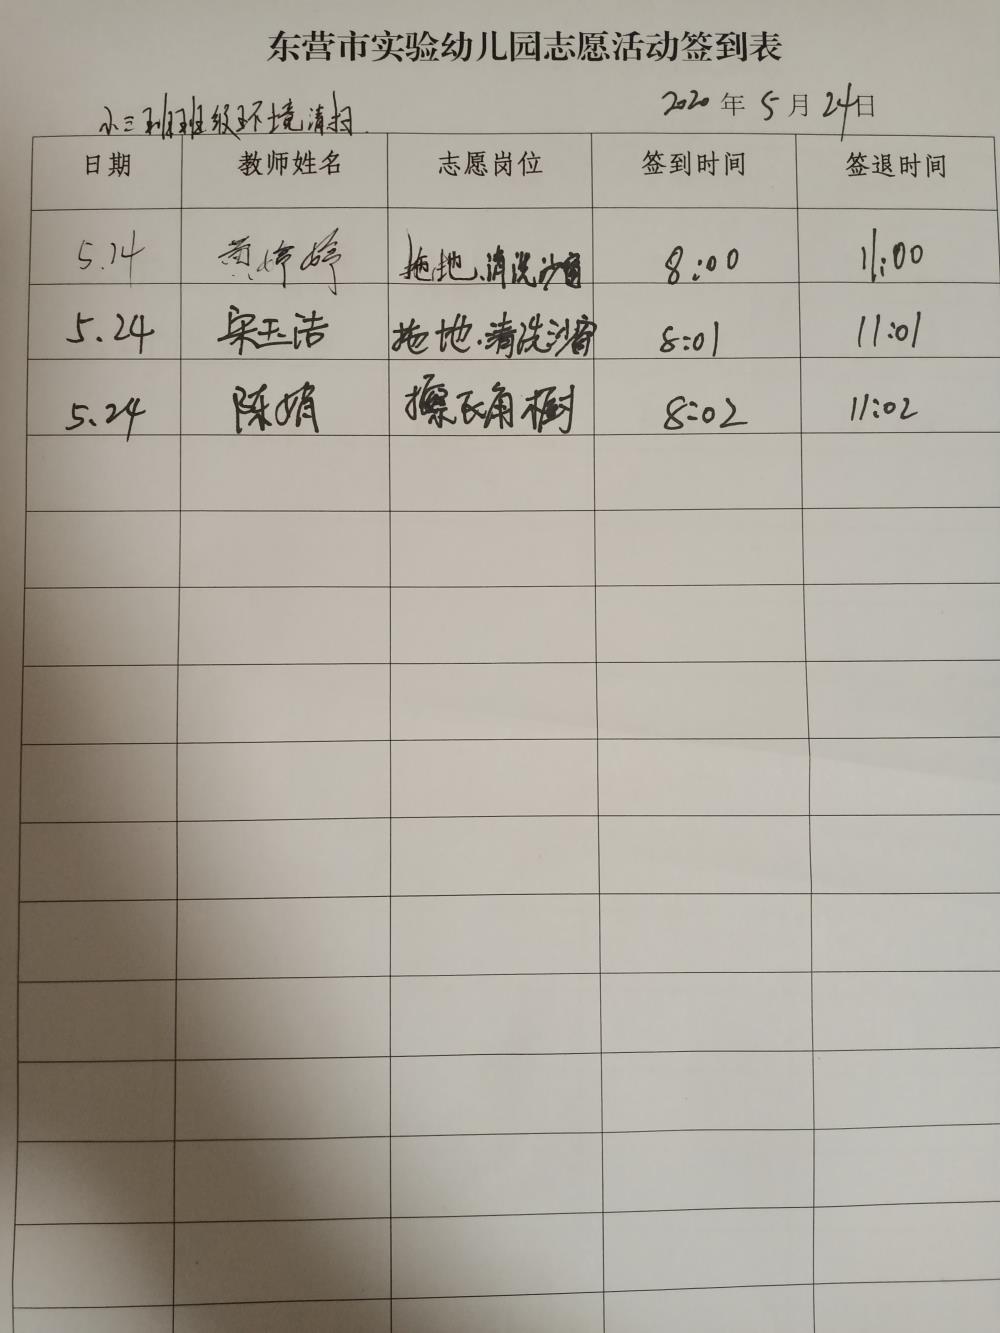 东营市实验幼儿园志愿活动签到表
小三班班级环境清扫
2020年5月24日
日期 教师姓名 志愿岗位 签到时间 签退时间
5.24 黄婷婷 拖地、清洗沙窗 8:00 11:00
5.24 宋玉洁 拖地、清洗沙窗 8:01 11:01
5.24 陈娟 擦瓦角橱 8:02 11:02